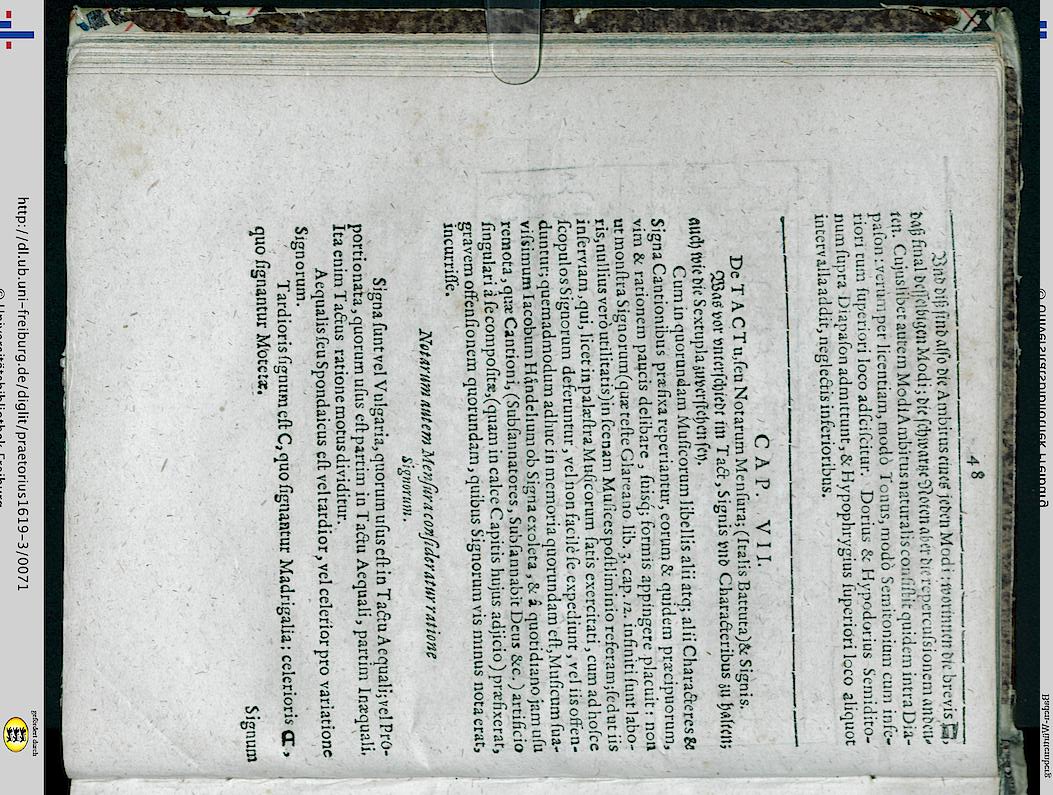 48
Vnd diß sind also die Ambitus eines jeden Modi: worinnen die brevis
daß final desselbigen Modi; die schwartze Noten aber die repercussionem andeu-
ten. Cujuslibet autem Modi Ambitus naturalis consistit quidem intra Dia-
pason: verum per licentiam, modò Tonus, modò Semitonium cum infe-
riori tum superiori loco adsciscitur. Dorius & Hypodorius Semidito-
num supra Diapason admittunt, & Hypophrygius superiori loco aliquot
intervalla addit, neglectis inferioribus.
CAP. VII.
De TACTu, seu Notarum Mensura; (Italis Battuta) & Signis.
Was vor vnterschiedt im Tact, Signis vnd Characteribus zu halten;
auch wie die Sextupla zuverstehen sey.
Cum in quorundam Musicorum libellis alii atq; alii Characteres &
Signa Cantionibus præfixa reperiantur, eorum & quidem præcipuorum,
vim & rationem paucis delibare, suisq; formis appingere placuit: non
ut monstra Signorum (quæ teste Glareano lib. 3. cap. 12. infiniti sunt labo-
ris, nullius verò utilitatis) in scenam Musices postliminio referam; sed ut iis
inserviam, qui, licet in palæstra Musicorum satis exercitati, cum ad hosce
scopulos Signorum deferuntur, vel non facilè se expediunt, vel iis offen-
duntur; quemadmodum adhuc in memoria quorundam est, Musicum sua-
vissimum Iacobum Händelium ob Signa exoleta, & â quotidiano jam usu
remota, quæ Cantioni, (Subsannatores, Subsannabit Deus &c.) artificio
singulari à se compositæ, (quam in calce Capitis hujus adjicio) præfixerat,
gravem offensionem quorundam, quibus Signorum vis minus nota erat,
incurrisse.
Notarum autem Mensura consideratur ratione
Signorum.
Signa sunt vel Vulgatia, quorum usus est in Tactu Aequali; vel Pro-
portionata, quorum usus est partim in Tactu Aequali, partim Inæquali.
Ita enim Tactus ratione motus dividitur.
Aequalis seu Spondaicus est vel tardior, vel celerior pro variatione
Signorum.
Tardioris signum est C, quo signantur Madrigalia: celerioris ₵,
quo signantur Motetæ.
Signum
http://dl.ub.uni-freiburg.de/diglit/praetorius1619-3/0071
© Universitätsbibliothek Freiburg
gefördert durch